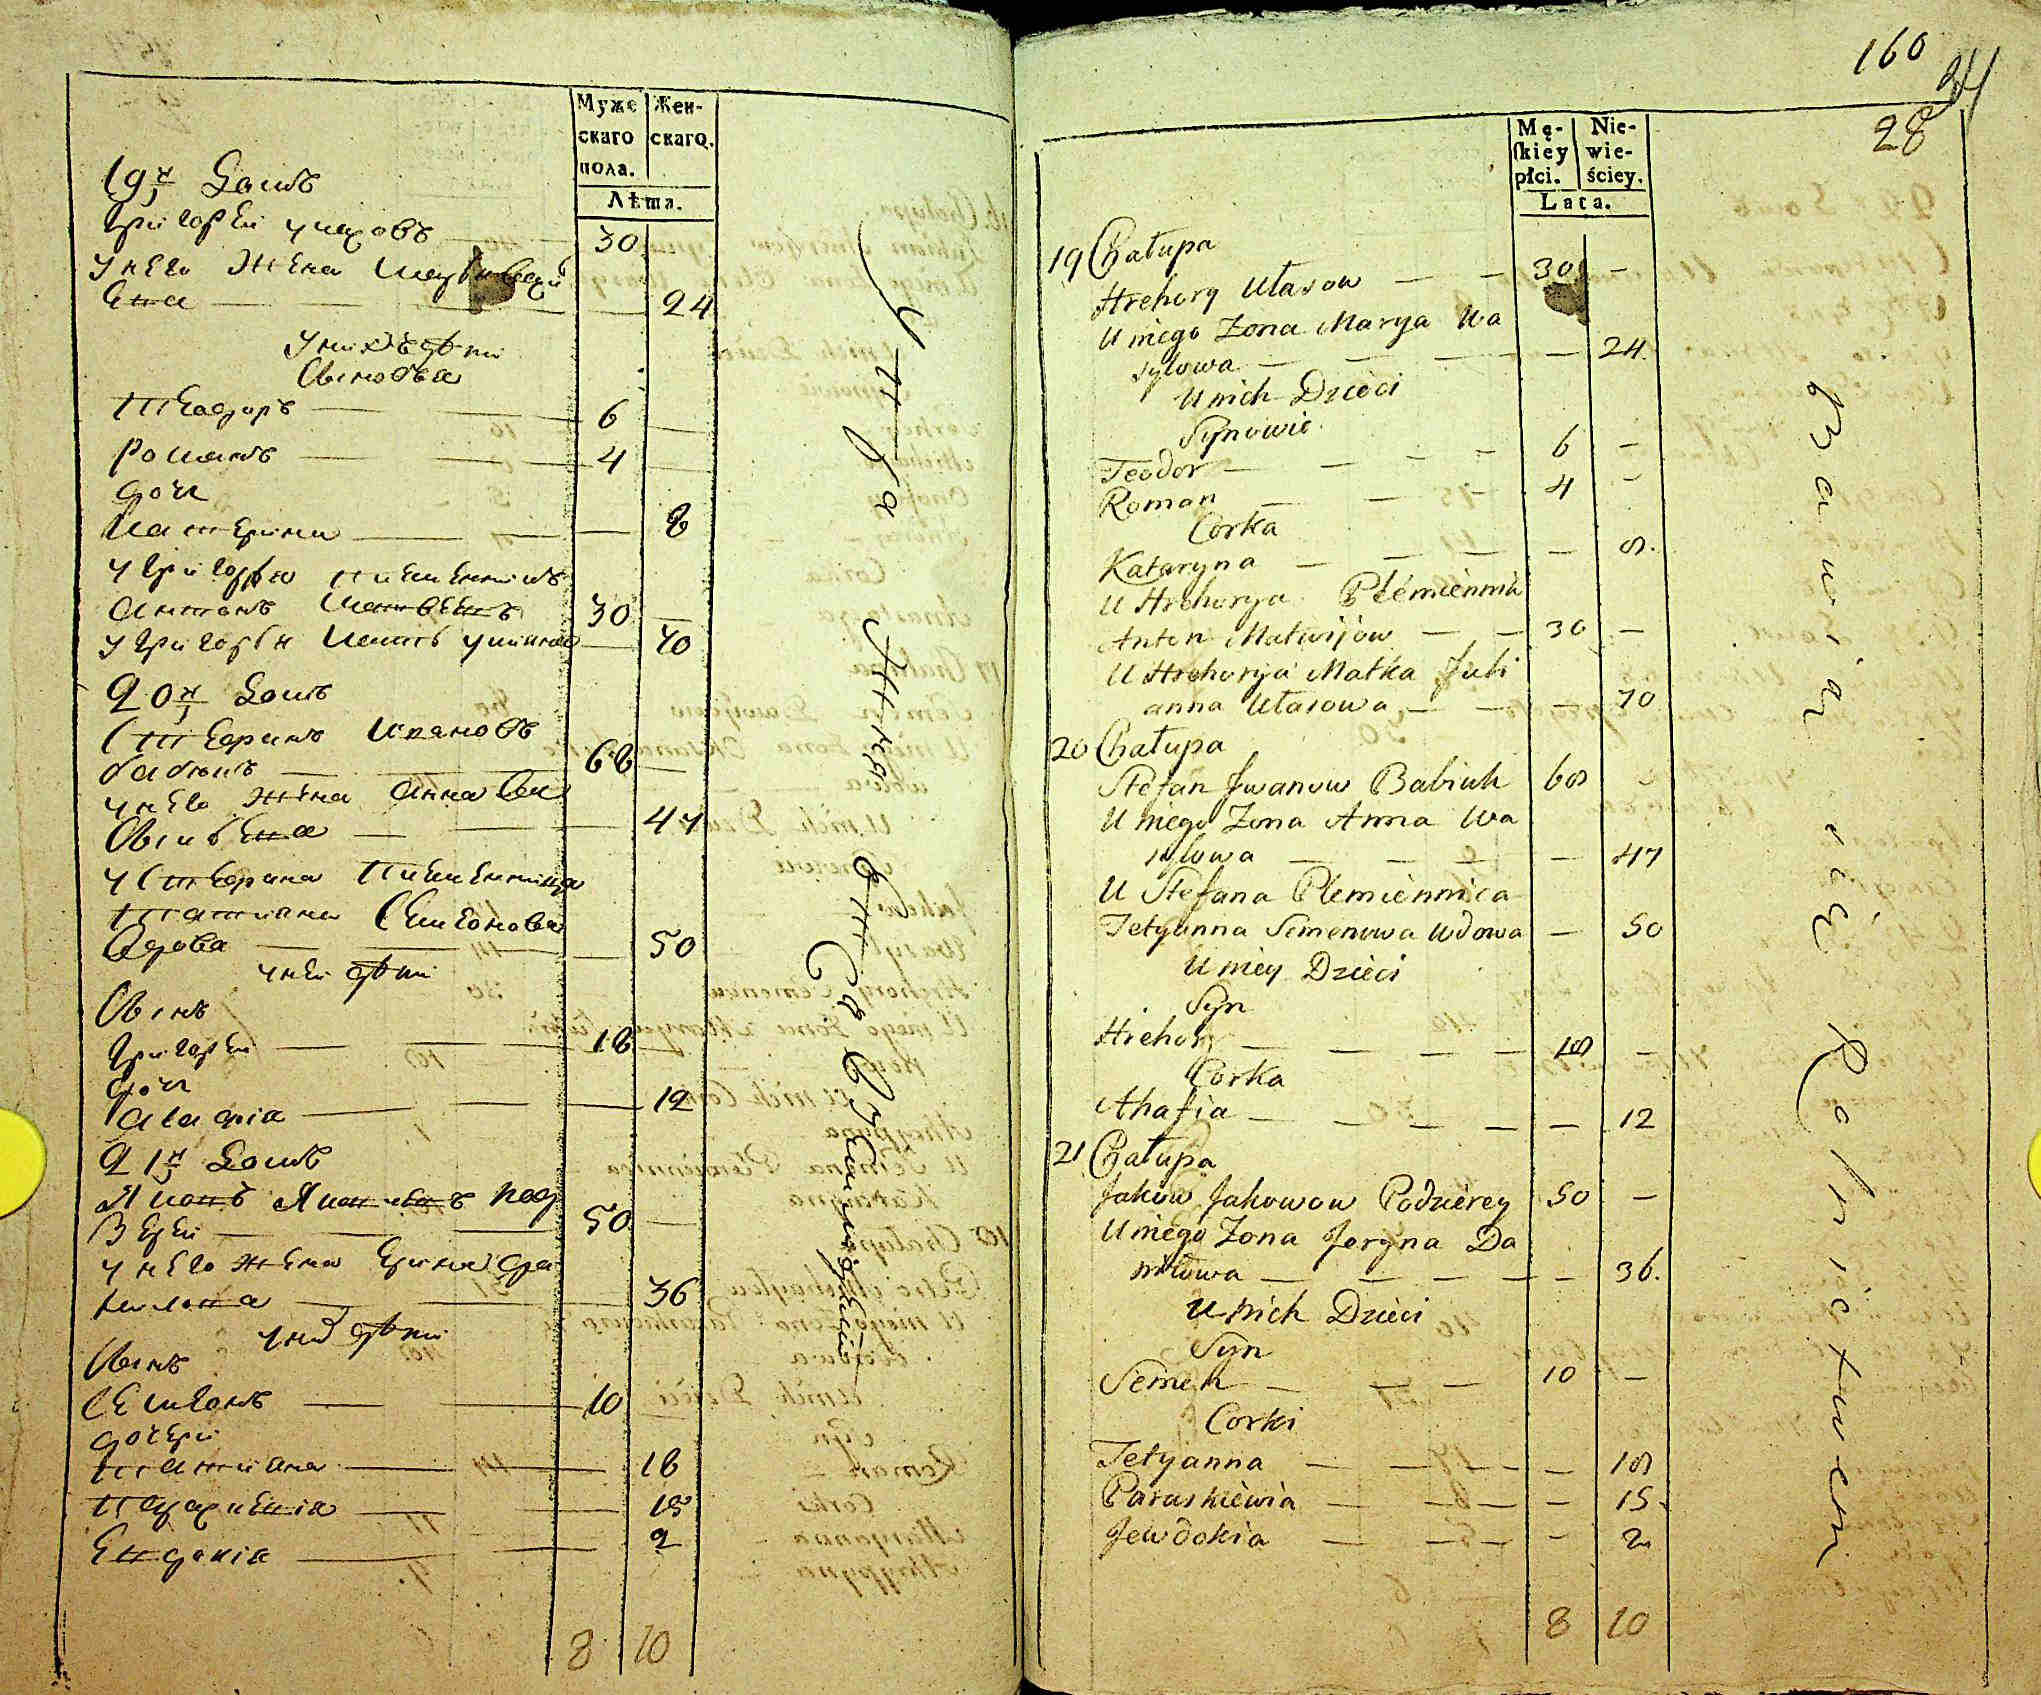 Муже
скаго
пола.
Жен-
скаго.
Лѣта.
19й Домъ
Григорей Уласовъ 30
У него Жена Марья Васи
льева 24
У нихъ дѣти
Сыновья
Теодоръ 6
Романъ 4
Дочь
Катерина 8
У Григорья племенникъ
Антонъ Матвеевъ 30
У Григорья Мать Ульяна 70
20й Домъ
Стефанъ Ивановъ
Бабюкъ 68
У него Жена Анна Ва
сильева 47
У Стефана Племенница
Татиана Семионова
Вдова 50
У ней дѣти
Сынъ
Григорей 18
Дочь
Агафiя 12
21й Домъ
Яковъ Яковлевъ Под
зерей 50
У него Жена Ерина Да
нилова 36
У нихъ дѣти
Сынъ
Семионъ 10
Дочери
Татиана 18
Параскевiя 15
Евдокiя 2
8 10
160
28
Mę-
skiey
płci.
Nie-
wie-
ściey.
Lata.
19 Chałupa
Hrehory Ułasow 30
U niego Zona Marya Wa
sylowa 24.
U nich Dzieci
Synowie
Teodor 6
Roman 4
Corka
Kataryna 8.
U Hrehorya Plemiennik
Anton Matwijow 30
U Hrehorya Matka Juli
anna Ułasowa 70
20 Chałupa
Stefan Jwanow Babiuk 68
U niego Zona Anna Wa
sylowa 47
U Stefana Plemiennica
Tetyanna Semenowa Wdowa 50
U niey Dzieci
Syn
Hrehory 18
Corka
Ahafia 12
21 Chałupa
Jakow Jakowow Podzerey 50
U niego Zona Jeryna Da
niłowa 36.
U nich Dzieci
Syn
Semen 10
Corki
Tetyanna 18
Paraskiewia 15
Jewdokia 2
8 10